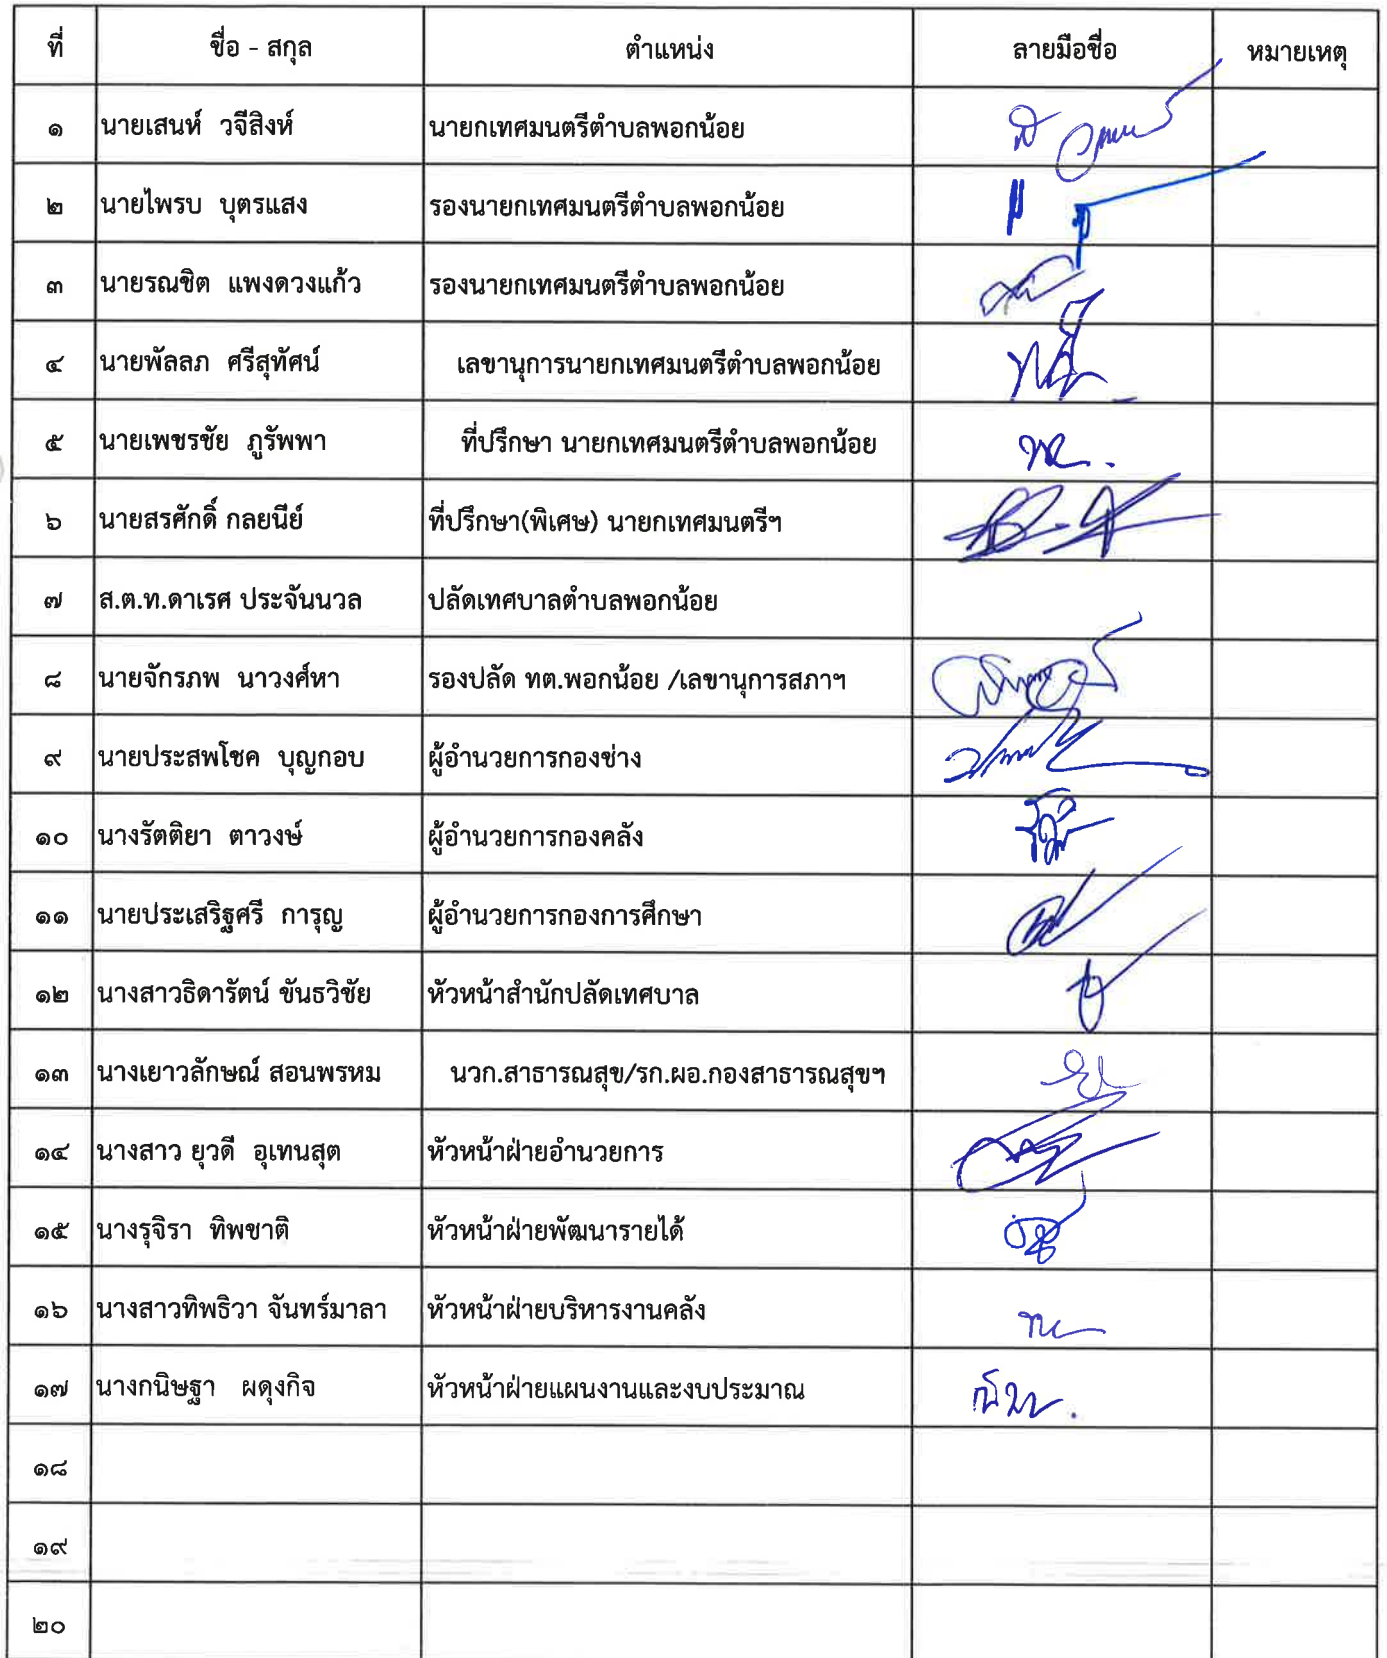 ที่ ชื่อ - สกุล ตำแหน่ง ลายมือชื่อ หมายเหตุ
๑ นายเสนห์ วจีสิงห์ นายกเทศมนตรีตำบลพอกน้อย
๒ นายไพรบ บุตรแสง รองนายกเทศมนตรีตำบลพอกน้อย
๓ นายรณชิต แพงดวงแก้ว รองนายกเทศมนตรีตำบลพอกน้อย
๔ นายพัลลภ ศรีสุทัศน์ เลขานุการนายกเทศมนตรีตำบลพอกน้อย
๕ นายเพชรชัย ภูรัพพา ที่ปรึกษา นายกเทศมนตรีตำบลพอกน้อย
๖ นายสรศักดิ์ กลยนีย์ ที่ปรึกษา(พิเศษ) นายกเทศมนตรีฯ
๗ ส.ต.ท.ดาเรศ ประจันนวล ปลัดเทศบาลตำบลพอกน้อย
๘ นายจักรภพ นาวงศ์หา รองปลัด ทต.พอกน้อย /เลขานุการสภาฯ
๙ นายประสพโชค บุญกอบ ผู้อำนวยการกองช่าง
๑๐ นางรัตติยา ตาวงษ์ ผู้อำนวยการกองคลัง
๑๑ นายประเสริฐศรี การุญ ผู้อำนวยการกองการศึกษา
๑๒ นางสาวธิดารัตน์ ขันธวิชัย หัวหน้าสำนักปลัดเทศบาล
๑๓ นางเยาวลักษณ์ สอนพรหม นวก.สาธารณสุข/รก.ผอ.กองสาธารณสุขฯ
๑๔ นางสาว ยุวดี อุเทนสุต หัวหน้าฝ่ายอำนวยการ
๑๕ นางรุจิรา ทิพชาติ หัวหน้าฝ่ายพัฒนารายได้
๑๖ นางสาวทิพธิวา จันทร์มาลา หัวหน้าฝ่ายบริหารงานคลัง
๑๗ นางกนิษฐา ผดุงกิจ หัวหน้าฝ่ายแผนงานและงบประมาณ
๑๘
๑๙
๒๐